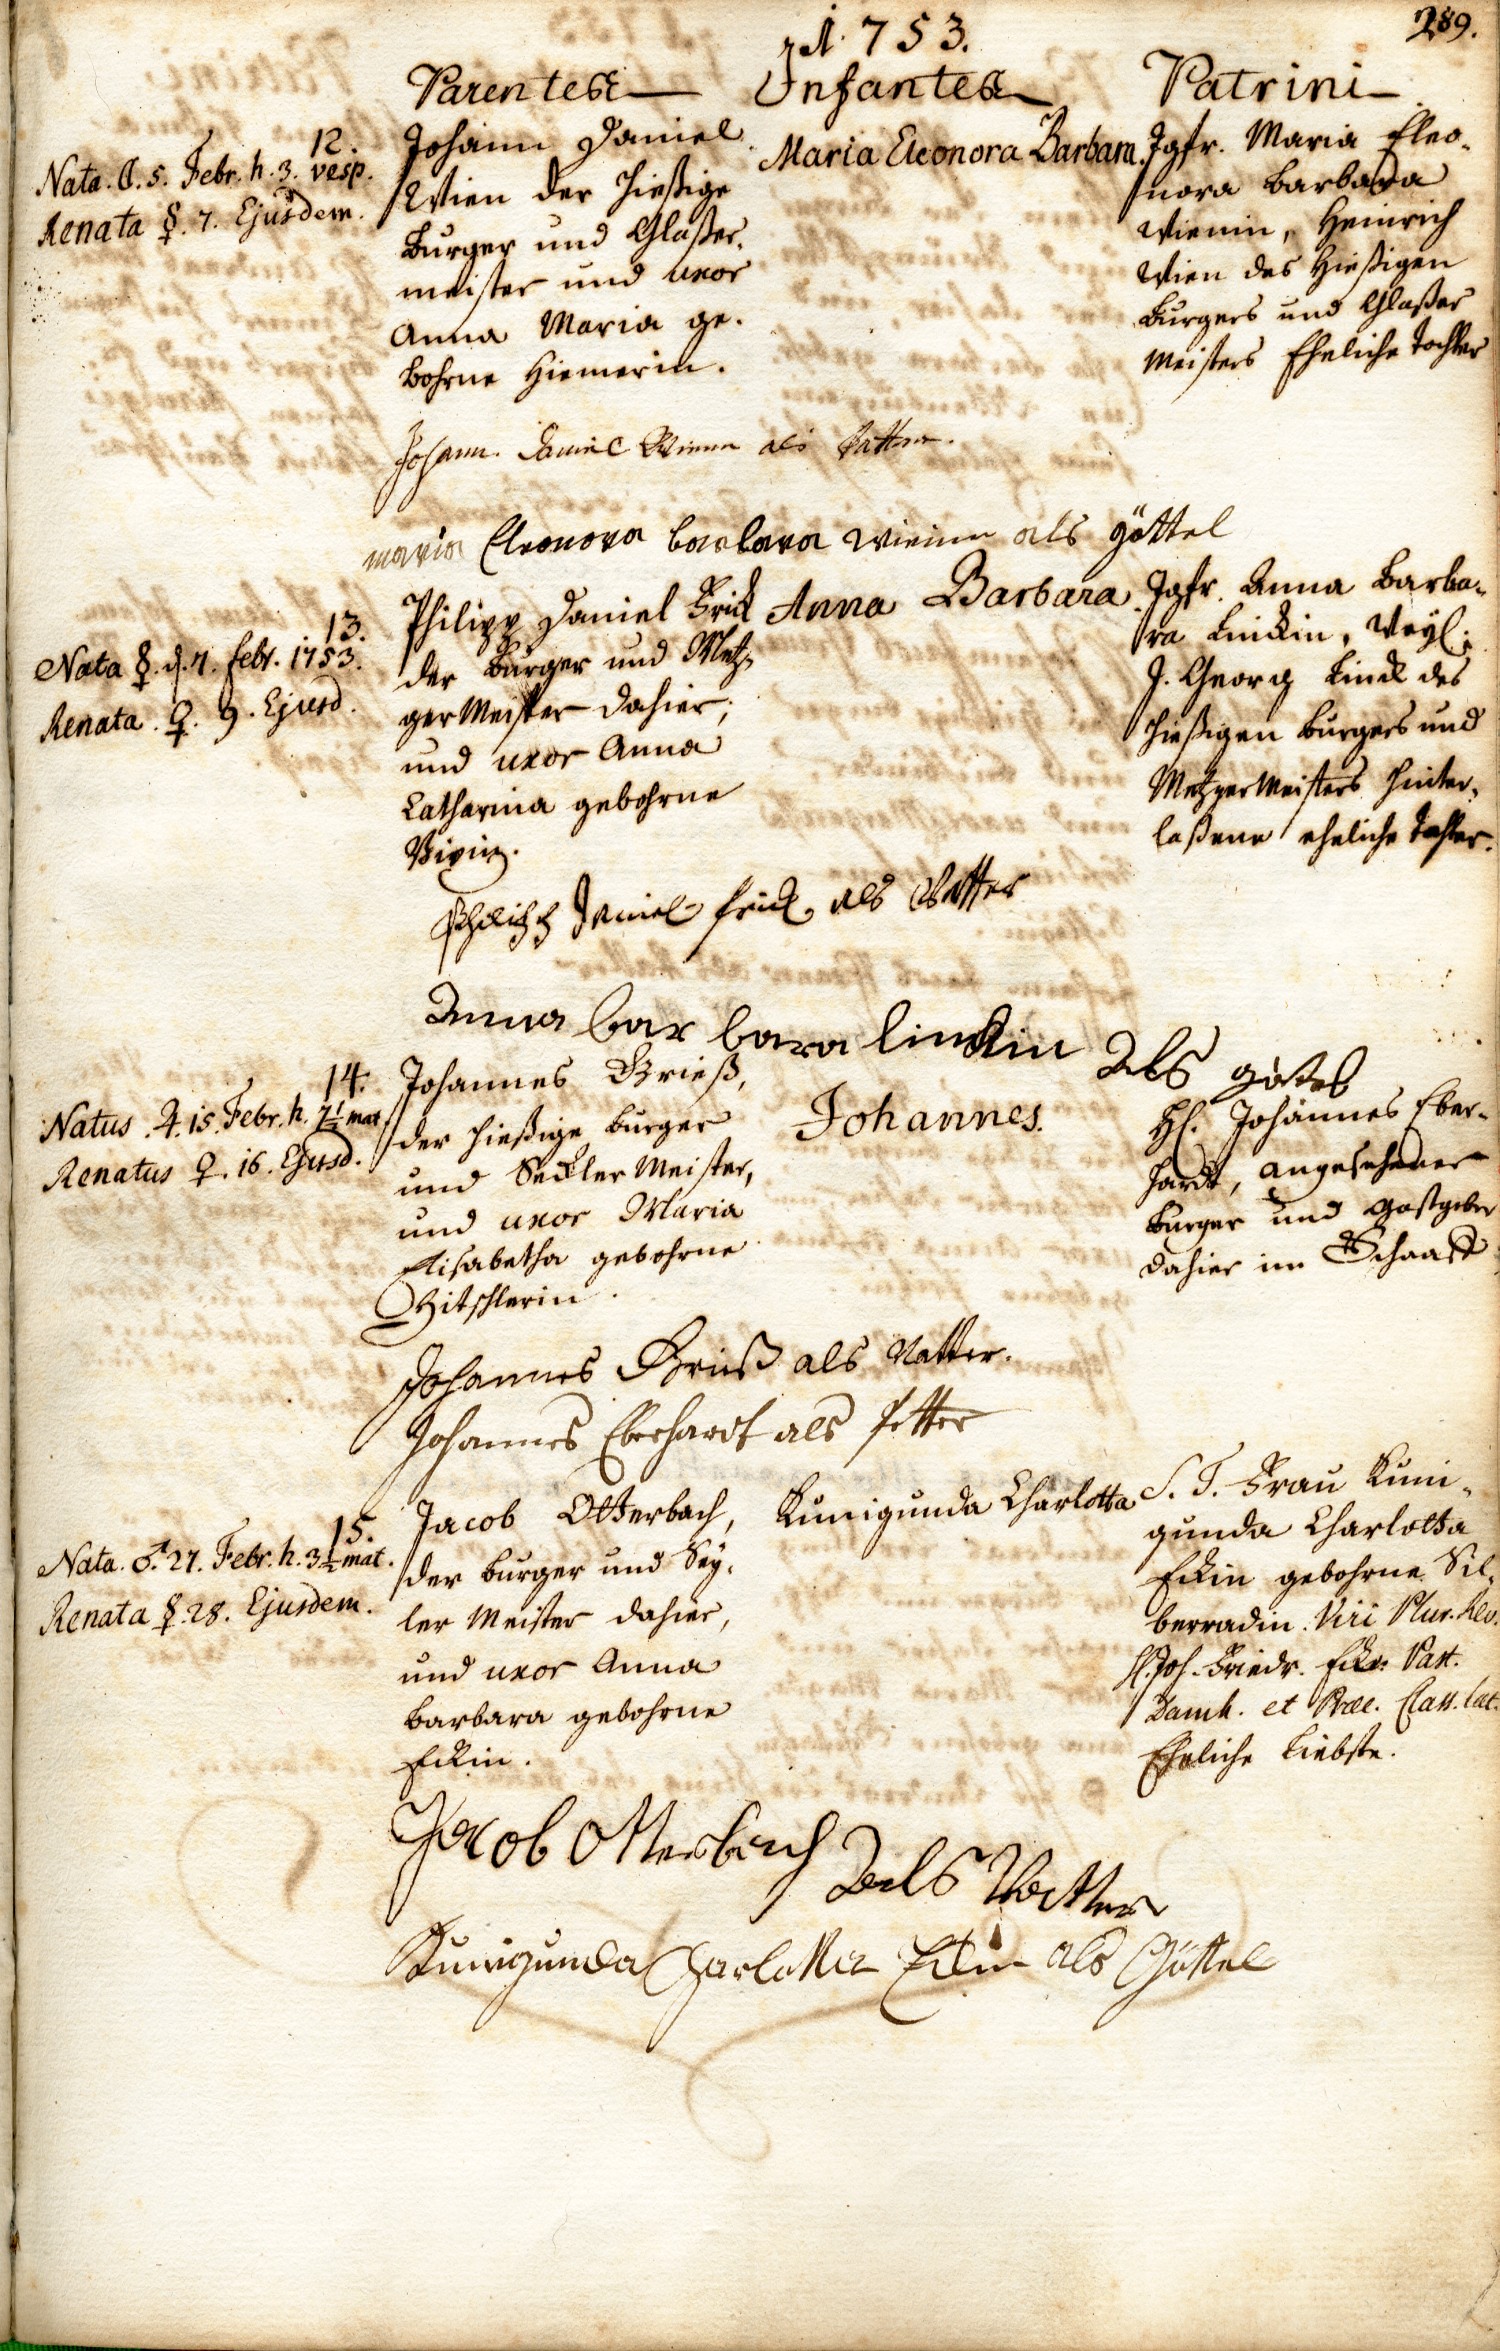 A. 1753.
289.
Parentes
Infantes
Patrini
12.
Nata. ☾. 5. Febr. h. 3. vesp.
Renata ☿. 7. Ejusdem.
Johann Daniel
Wien der hießige
Burger und Glaßer-
meister und uxor
Anna Maria ge-
bohrne Hiemerin.
Maria Eleonora Barbara.
Jgfr. Maria Eleo-
nora Barbara
Wienin, Heinrich
Wien des hießigen
Burgers und Glaßer
Meisters Eheliche Tochter
Johann Daniel Wienn als Vatter.
maria Eleonora barbara wienin als göttel
13.
Nata ☿. d. 7. febr. 1753.
Renata. ♀. 9. Ejusd.
Philipp Daniel Frick
der Burger und Metz-
ger Meister dahier;
und uxor Anna
Catharina gebohrne
Anna Barbara
Jgfr. Anna Barba-
ra Linckin, Weyl.
J. Georg Linck des
hießigen Burgers und
Metzger Meisters hinter-
laßene eheliche Tochter.
Philipp Daniel frick als Vatter
Anna bar bara linckin Als götel
14.
Natus. ♃. 15. Febr. h. 7½ mat.
Renatus ♀. 16. Ejusd.
Johannes Grieß,
der hießige Burger
und Seckler Meister,
und uxor Maria
Elisabetha gebohrne
Zitschlerin.
Johannes.
H. Johannes Eber-
hardt, angesehener
Burger und Gastgeber
dahier im Schaaff
Johannes Grieß als Vatter.
Johannes Eberhardt als Petter
15.
Nata. ♂. 27. Febr. h. 3½ mat.
Renata ☿. 28. Ejusdem.
Jacob Otterbach,
der Burger und Sey-
ler Meister dahier,
und uxor Anna
Barbara gebohrne
Eckin.
Kunigunda Charlotta
S. T. Frau Kuni-
gunda Charlotta
Eckin gebohrne Sil-
berradin. Viri Plur. Rev.
H. Joh. Friedr. Past.
et Præc. Class. lat.
Eheliche Liebste.
Jacob Otterbach Als Vatter
Kunigunda Charlotta Eckin als Göttel